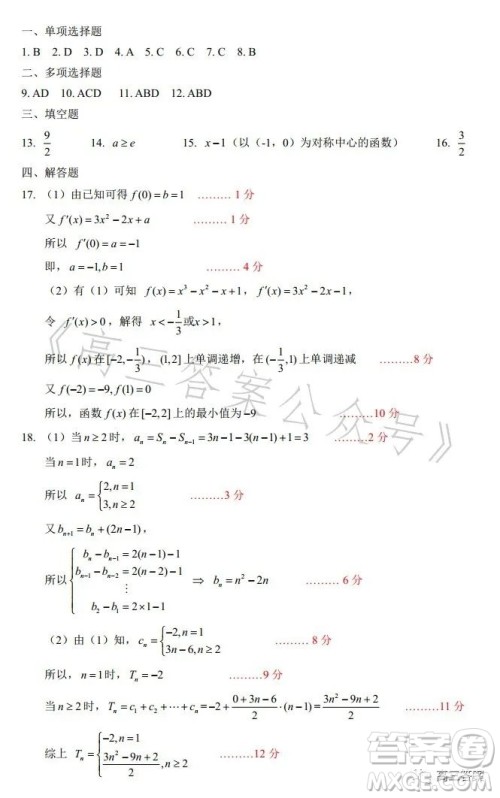 一、单项选择题
1. B 2. D 3. D 4. A 5. C 6. C 7. C 8. B
二、多项选择题
9. AD 10. ACD 11. ABD 12. ABD
三、填空题
13. 9/2 14. a ≥ e 15. x−1（以（-1，0）为对称中心的函数） 16. 3/2
四、解答题
17. （1）由已知可得 f(0) = b = 1 ......... 1 分
又 f′(x) = 3x² − 2x + a
所以 f′(0) = a = −1
即，a = −1, b = 1 ......... 4 分
（2）有（1）可知 f(x) = x³ − x² − x + 1，f′(x) = 3x² − 2x − 1，
令 f′(x) > 0，解得 x < −1/3 或 x > 1，
所以 f(x) 在 [−2, −1/3)，(1, 2] 上单调递增，在 (−1/3, 1) 上单调递减 ........8 分
又 f(−2) = −9, f(1) = 0
所以，函数 f(x) 在 [−2, 2] 上的最小值为 −9 ........10 分
18. （1）当 n ≥ 2 时，aₙ = Sₙ − Sₙ₋₁ = 3n − 1 − 3(n − 1) + 1 = 3 ........2 分
当 n = 1 时，aₙ = 2
所以 aₙ = { 2, n = 1
3, n ≥ 2 .........3 分
又 bₙ₊₁ = bₙ + (2n − 1)，
所以 { bₙ − bₙ₋₁ = 2(n − 1) − 1
bₙ₋₁ − bₙ₋₂ = 2(n − 2) − 1
⋮
b₂ − b₁ = 2 × 1 − 1 ⇒ bₙ = n² − 2n ......... 6 分
（2）由（1）知，cₙ = { −2, n = 1
3n − 6, n ≥ 2 ......... 8 分
所以，n = 1 时，Tₙ = −2 .........9 分
当 n ≥ 2 时，Tₙ = c₁ + c₂ + ⋯ + cₙ = −2 + (0 + 3n − 6)/2 · (n − 1) = (3n² − 9n + 2)/2 ........11 分
综上 Tₙ = { −2, n = 1
(3n² − 9n + 2)/2, n ≥ 2 .........12 分
《高三答案公众号》
答案圈